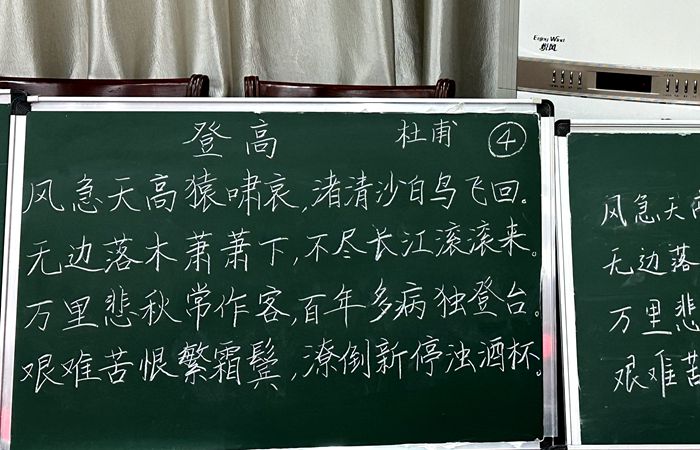 Enjoy Wind
登高 杜甫 ④
风急天高猿啸哀，渚清沙白鸟飞回。
无边落木萧萧下，不尽长江滚滚来。
万里悲秋常作客，百年多病独登台。
艰难苦恨繁霜鬓，潦倒新停浊酒杯。
风急天高
无边落
万里悲
艰难苦